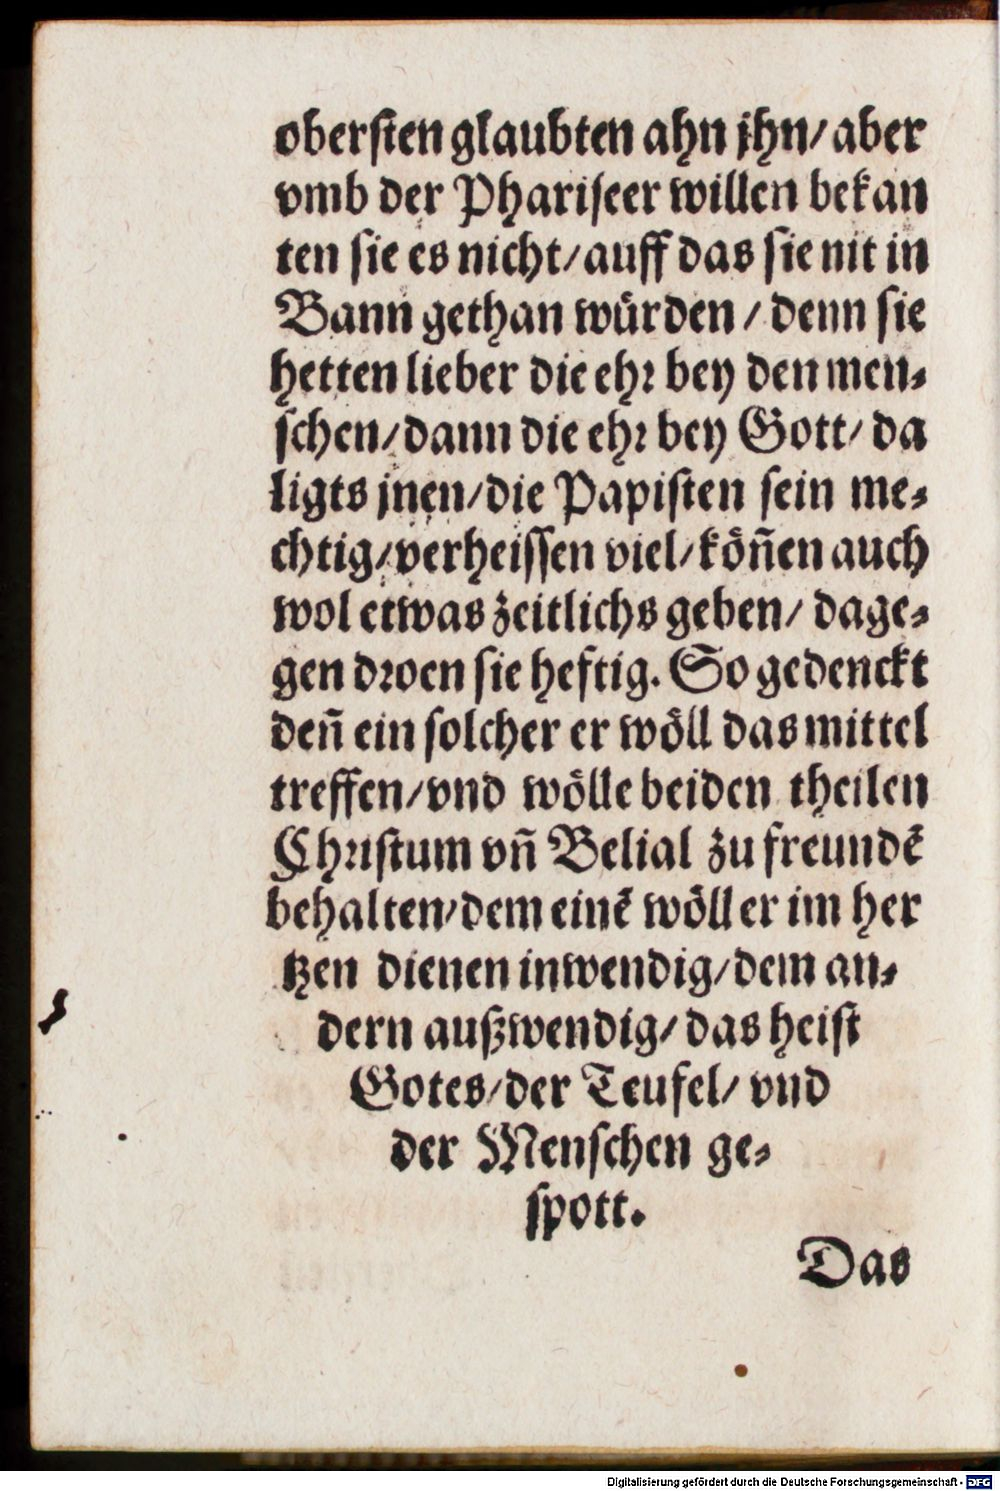 obersten glaubten ahn jhn/ aber
vmb der Phariseer willen bekan
ten sie es nicht/ auff das sie nit in
Bann gethan würden / denn sie
hetten lieber die ehr bey den men-
schen/ dann die ehr bey Gott/ da
ligts jnen/ die Papisten sein me-
chtig/ verheissen viel/ köñen auch
wol etwas zeitlichs geben/ dage-
gen droen sie heftig. So gedenckt
deñ ein solcher er wöll das mittel
treffen/ vnd wölle beiden theilen
Christum vñ Belial zu freundẽ
behalten/ dem einẽ wöll er im her
tzen dienen inwendig/ dem an-
dern außwendig/ das heist
Gotes/ der Teufel/ vnd
der Menschen ge-
spott.
Das
Digitalisierung gefördert durch die Deutsche Forschungsgemeinschaft - DFG